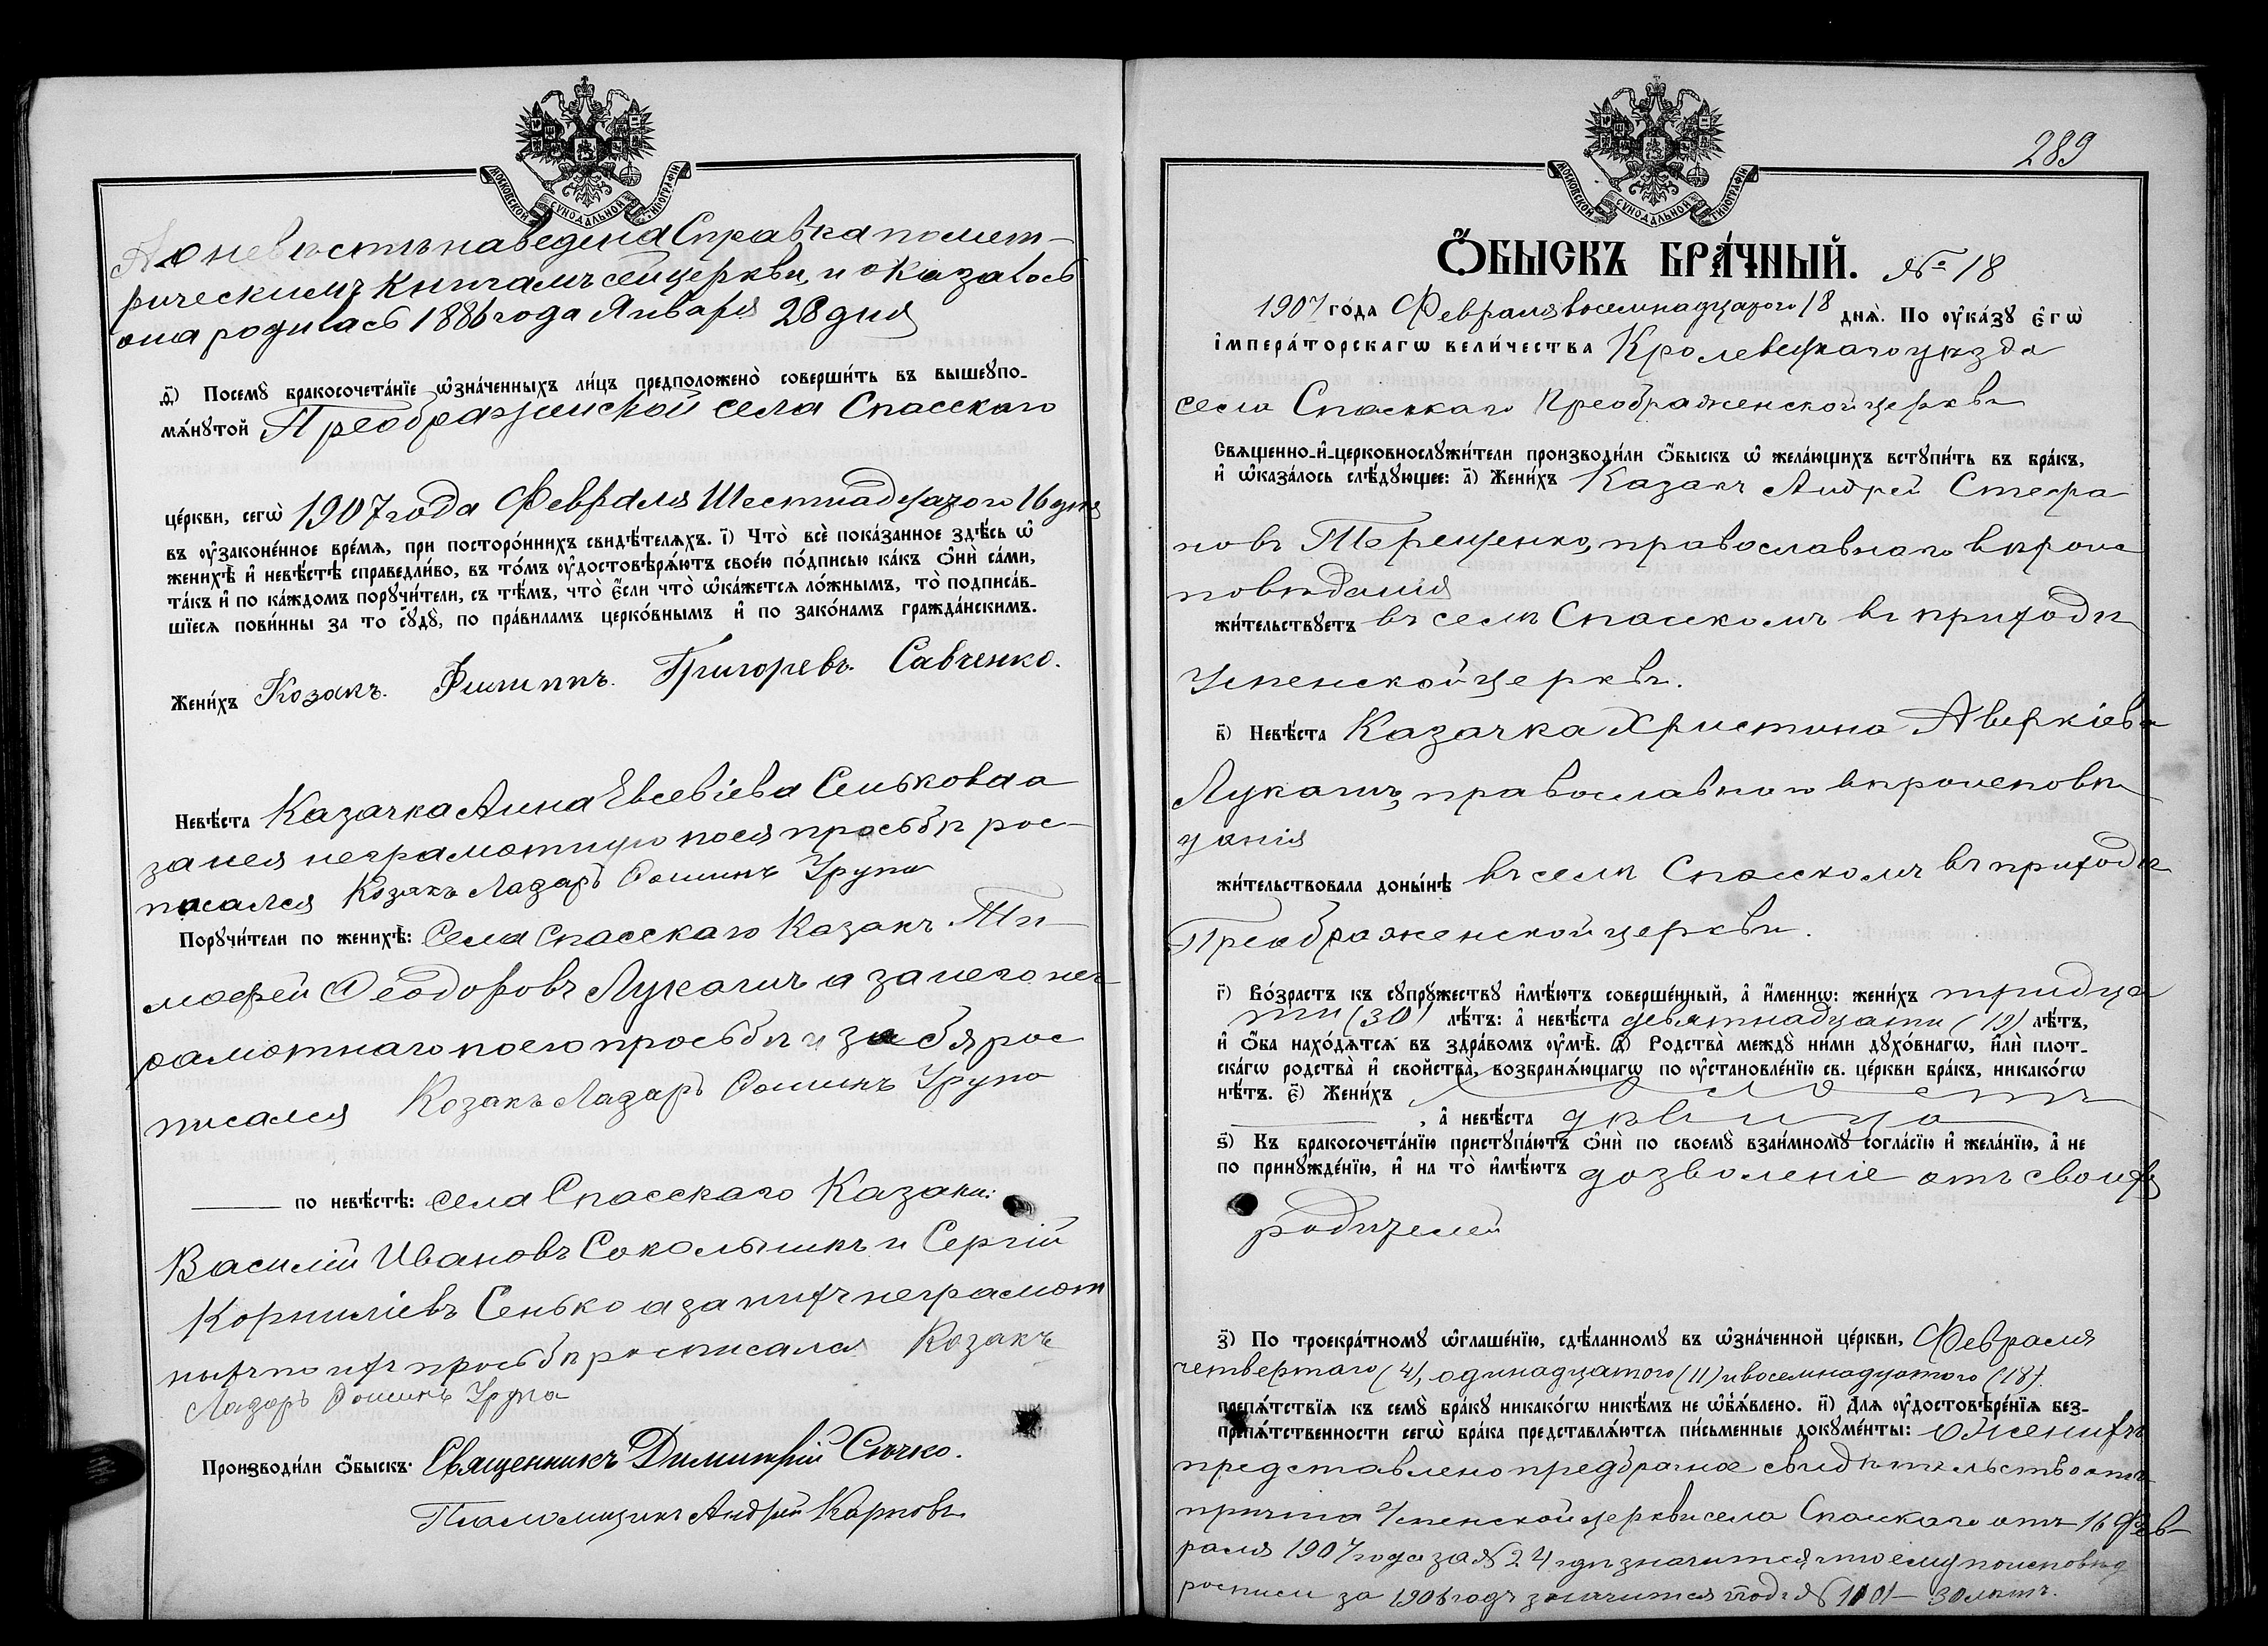 МОСКОВСКОЙ СУНОДАЛЬНОЙ ТИПОГРАФІИ
А о невѣстѣ наведена Справка по мет-
рическимъ книгамъ сей церкви, и оказалось
она родилась 1886 года Января 28 дня
д҃і) Посемꙋ̀ бракосочета́нїе ѡ҆зна́ченныхъ ли́цъ предположено̀ соверши́ть въ вышеꙋпо-
мѧ́нꙋтой Преображенской села Спасскаго
це́ркви, сегѡ̀ 1907 года Февраля Шестнадцатого 16 дня
въ ᲂу҆зако́не́нное вре́мѧ, при посторо́ннихъ свидѣ́телѧхъ. і҃) Что̀ всѐ пока́занное здѣ́сь ѡ҆
женихѣ̀ и҆ невѣ́стѣ справедли́во, въ то́мъ ᲂу҆достовѣрѧ́ютъ свое́ю по́дписью ка́къ ѻ҆нѝ са́ми,
та́къ и҆ по ка́ждомъ порꙋчи́тели, съ тѣ́мъ, что̀ є҆́сли что̀ ѡ҆ка́жетсѧ ло́жнымъ, то̀ подписа́в-
шїесѧ пови́нны за то сꙋдꙋ̀, по пра́виламъ церко́внымъ и҆ по зако́намъ гражда́нскимъ.
Жени́хъ Козакъ. Филиппъ. Григорєвъ. Савченко.
Невѣ́ста Казачка Анна Евсевіева Сенькова а
за нея неграмотную поея просьбѣ рос-
писался Козакъ Лазарь Ѳоминъ Трупа
Порꙋчи́тели по женихѣ̀: Села Спасскаго Казакъ Ти-
мофей Ѳеодоровъ Лукашъ а за него нег
рамотнаго поего просьбѣ и за бя рос
писался Козакъ Лазарь Ѳоминъ Трупа
по невѣ́стѣ: села Спасскаго Казаки:
Василій Ивановъ Сокольникъ и Сергій
Корниліевъ Сенько а за нихъ неграмот
ныхъ по ихъ просьбѣ росписался Козакъ
Лазарь Ѳоминъ Трупа
Производи́ли ѻ҆́быскъ: Священникъ Димитрій Сѣчко.
Псаломщикъ Андрей Карповъ
289
МОСКОВСКОЙ СУНОДАЛЬНОЙ ТИПОГРАФІИ
Ѻ҆́БЫСКЪ БРА́ЧНЫЙ. № 18
1907 го́да Февраля восемнадцатого 18 днѧ̀. По ᲂу҆ка́зꙋ є҆гѡ̀
і҆мпера́торскагѡ вели́чества Кролевецкаго уѣзда
села Спасскаго Преображенской церкви
Свѧщенно-и҆-церковнослꙋжи́тели производи́ли ѻ҆́быскъ ѡ҆ жела́ющихъ встꙋпи́ть въ бра́къ,
и҆ ѡ҆каза́лось слѣ́дꙋющее: а҃) Жени́хъ Казакъ Андрей Стефа
новъ Терещенко, православнаго вѣроис
повѣданія
жи́тельствꙋетъ въ селѣ Спасскомъ въ приходѣ
Успенской церкви.
в҃) Невѣ́ста Казачка Христина Аверкіева
Лукашъ, православного вѣроисповѣ
данія
жи́тельствовала доны́нѣ въ селѣ Спасскомъ въ приходѣ
Преображенской церкви.
г҃) Во́зрастъ къ сꙋпрꙋ́жествꙋ и҆мѣ́ютъ соверше́нный, а҆ и҆́меннѡ: жени́хъ тридца
ти (30) лѣ́тъ: а҆ невѣ́ста девятнадцати (19) лѣ́тъ,
и҆ ѻ҆́ба нахо́дѧтсѧ въ здра́вомъ ᲂу҆мѣ̀. д҃) Родства̀ междꙋ ни́ми дꙋхо́внагѡ, и҆лѝ плот-
ска́гѡ родства̀ и҆ сво́йства, возбранѧ́ющагѡ по ᲂу҆становле́нїю св. це́ркви бра́къ, никако́гѡ
нѣ́тъ. є҃) Жени́хъ холостъ
, а҆ невѣ́ста дѣвица
ѕ҃) Къ бракосочета́нїю пристꙋпа́ютъ ѻ҆нѝ по своемꙋ̀ взаи́мномꙋ согла́сїю и҆ жела́нїю, а҆ не
по принꙋжде́нїю, и҆ на то̀ и҆мѣ́ютъ дозволеніе отъ своихъ
родителей
з҃) По троекра́тномꙋ ѡ҆глаше́нїю, сдѣ́ланномꙋ въ ѡ҆зна́ченной це́ркви, Февраля
четвертаго (4), одинадцатого (11) и восемнадцатого (18).
препѧ́тствїѧ къ семꙋ̀ бра́кꙋ никако́гѡ никѣ́мъ не ѡ҆б̾ѧ́влено. и҃) Длѧ ᲂу҆достовѣре́нїѧ без-
препѧ́тственности сегѡ̀ бра́ка представлѧ́ютсѧ пи́сьменные докꙋме́нты: о Женихѣ
представлено предбрачное свидѣтельство отъ
причта Успенской церкви села Спасскаго отъ 16 Фев-
раля 1907 года за № 24 гдѣ значится что ему по исповѣд
росписи за 1906 годъ значится подъ № 101 — 30 лѣтъ.